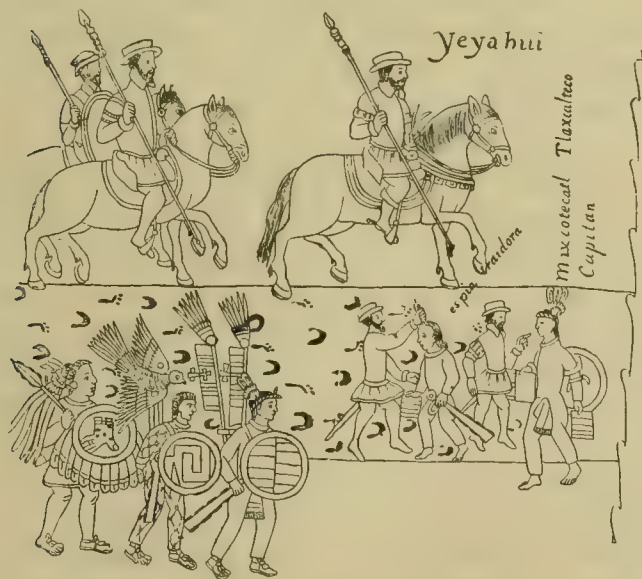 Yeyahui
espia traidora
Mixcotecatl Tlaxcalteco
Capitan